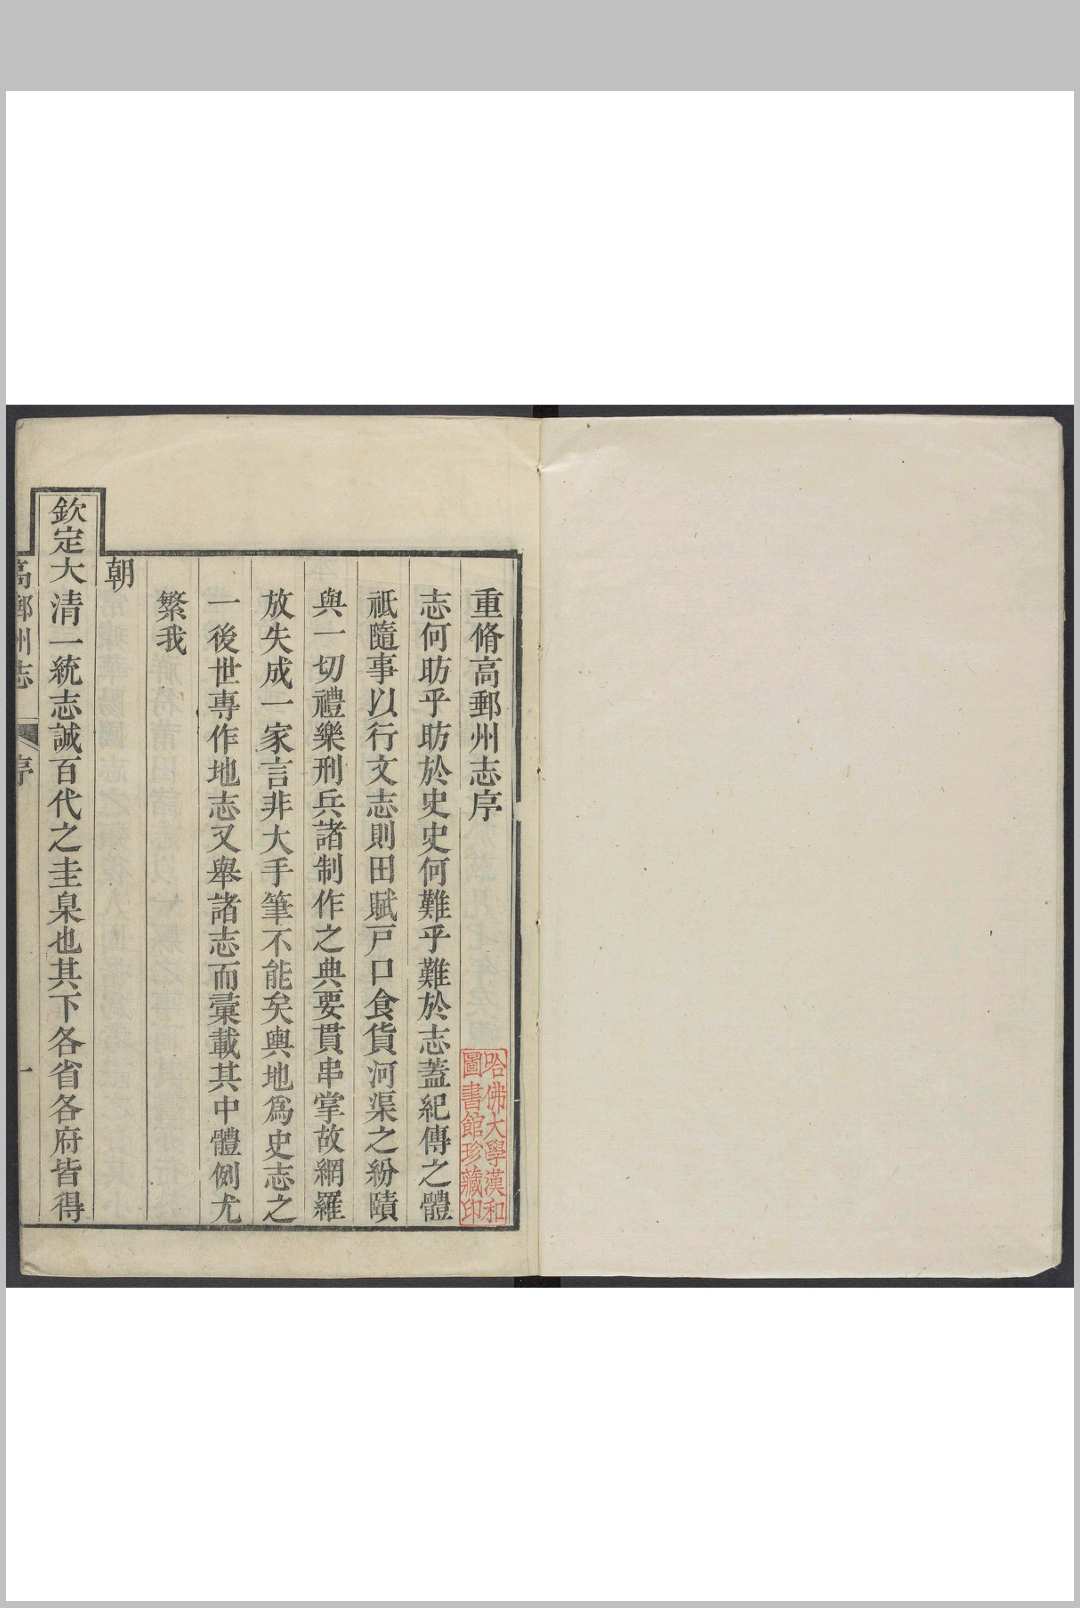 重脩高郵州志序
哈佛大學漢和
圖書館珍藏印
志何昉乎昉於史史何難乎難於志蓋紀傳之體
祗隨事以行文志則田賦戸口食貨河渠之紛賾
與一切禮樂刑兵諸制作之典要貫串掌故網羅
放失成一家言非大手筆不能矣輿地爲史志之
一後世專作地志又舉諸志而彚載其中體例尤
繁我
朝
欽定大清一統志誠百代之圭臬也其下各省各府皆得
高郵州志
序
一